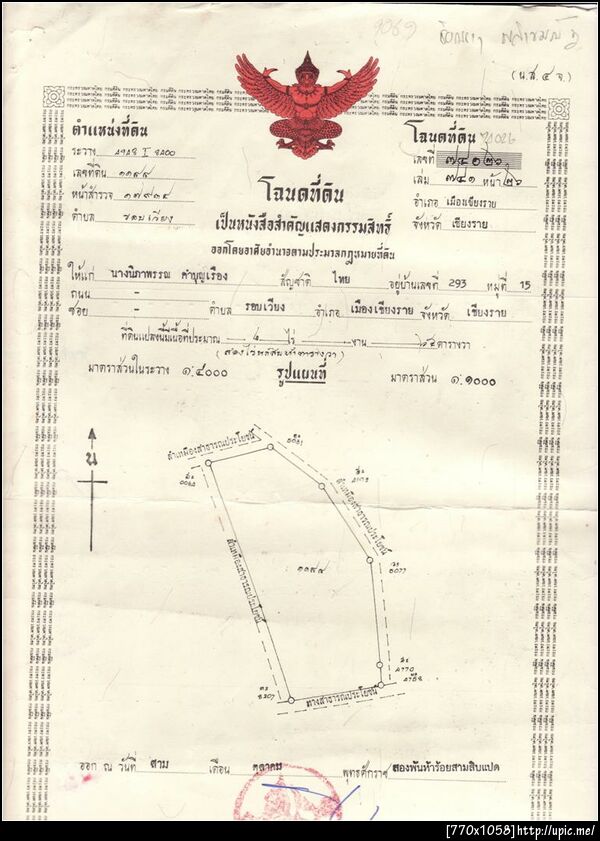 (น.ส. ๔ จ.)
ตำแหน่งที่ดิน
ระวาง
เลขที่ดิน ๑๑๙๙
หน้าสำรวจ
ตำบล รอบเวียง
โฉนดที่ดิน
เลขที่
เล่ม ๗๔๑ หน้า ๒๖
อำเภอ เมืองเชียงราย
จังหวัด เชียงราย
โฉนดที่ดิน
เป็นหนังสือสำคัญแสดงกรรมสิทธิ์
ออกโดยอาศัยอำนาจตามประมวลกฎหมายที่ดิน
ให้แก่ นางนิภาพรรณ คำบุญเรือง สัญชาติ ไทย อยู่บ้านเลขที่ 293 หมู่ที่ 15
ถนน -
ซอย - ตำบล รอบเวียง อำเภอ เมืองเชียงราย จังหวัด เชียงราย
ที่ดินแปลงนี้มีเนื้อที่ประมาณ ๒ ไร่ - งาน ๖๕ ตารางวา
(สองไร่หกสิบห้าตารางวา)
มาตราส่วนในระวาง ๑:๔๐๐๐ รูปแผนที่ มาตราส่วน ๑:๑๐๐๐
น
ลำเหมืองสาธารณประโยชน์
ลำเหมืองสาธารณประโยชน์
ลำเหมืองสาธารณประโยชน์
๑๑๙๙
ทางสาธารณประโยชน์
ออก ณ วันที่ สาม เดือน ตุลาคม พุทธศักราช สองพันห้าร้อยสามสิบแปด
[770x1058]http://upic.me/